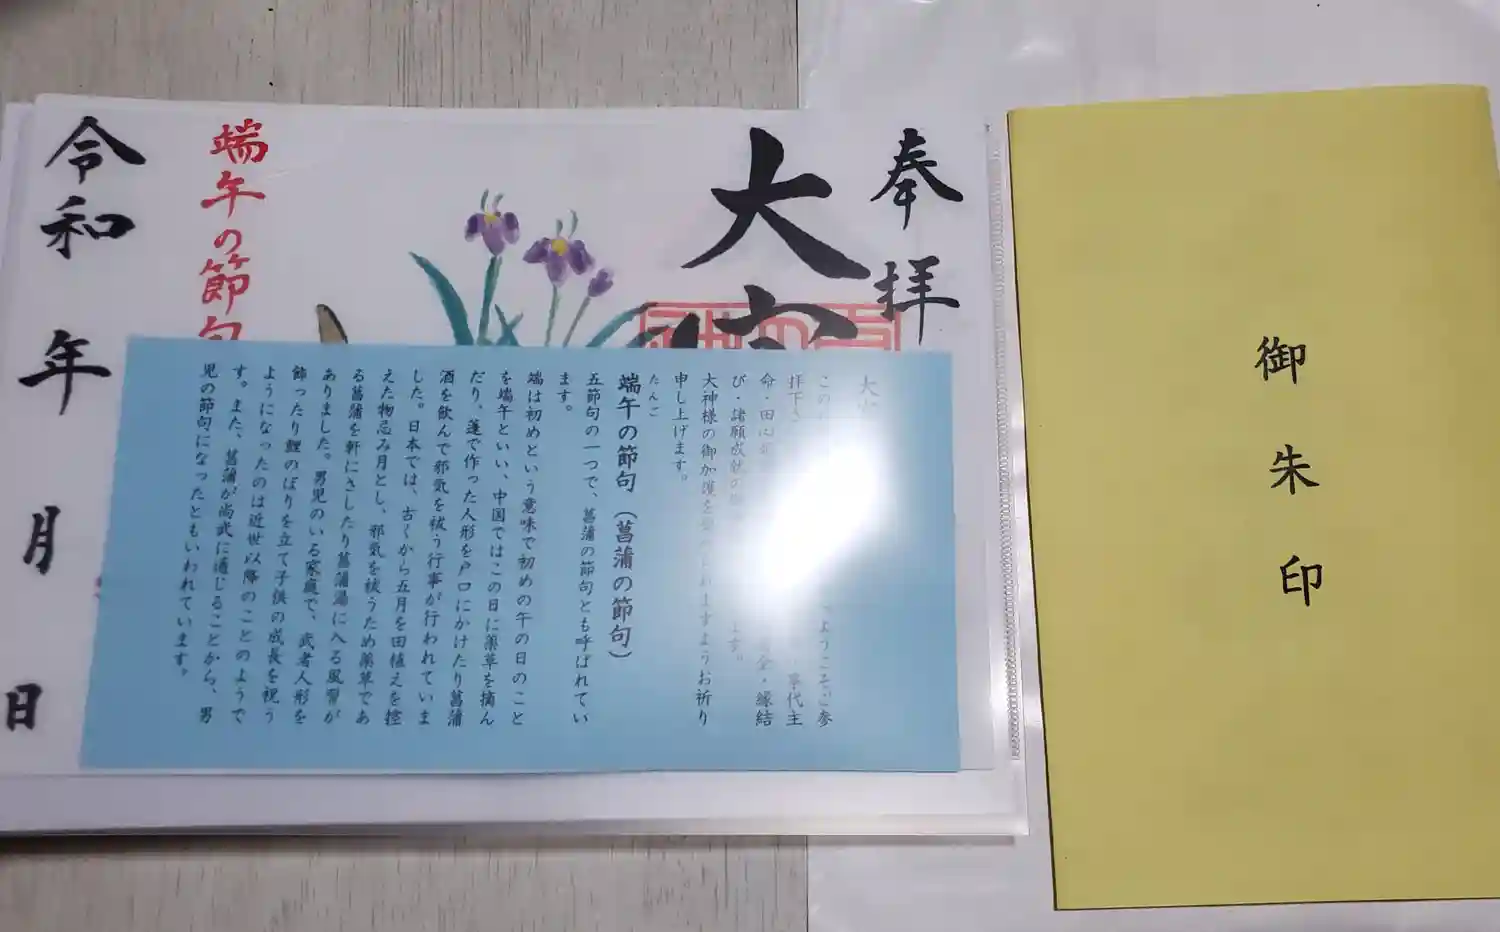 奉拝
大宮
端午の節句
令和 年 月 日
大
この
ようこそご参
拝下さ
事代主
命・田心
全・縁結
び・諸願成就の
ます。
大神様の御加護を
ますようお祈り
申し上げます。
たんご
端午の節句(菖蒲の節句)
五節句の一つで、菖蒲の節句とも呼ばれてい
ます。
端は初めという意味で初めの午の日のこと
を端午といい、中国ではこの日に薬草を摘ん
だり、蓬で作った人形を戸口にかけたり菖蒲
酒を飲んで邪気を祓う行事が行われていま
した。日本では、古くから五月を田植えを控
えた物忌み月とし、邪気を祓うため薬草であ
る菖蒲を軒にさしたり菖蒲湯に入る風習が
ありました。男児のいる家庭で、武者人形を
飾ったり鯉のぼりを立て子供の成長を祝う
ようになったのは近世以降のことのようで
す。また、菖蒲が尚武に通じることから、男
児の節句になったともいわれています。
御朱印